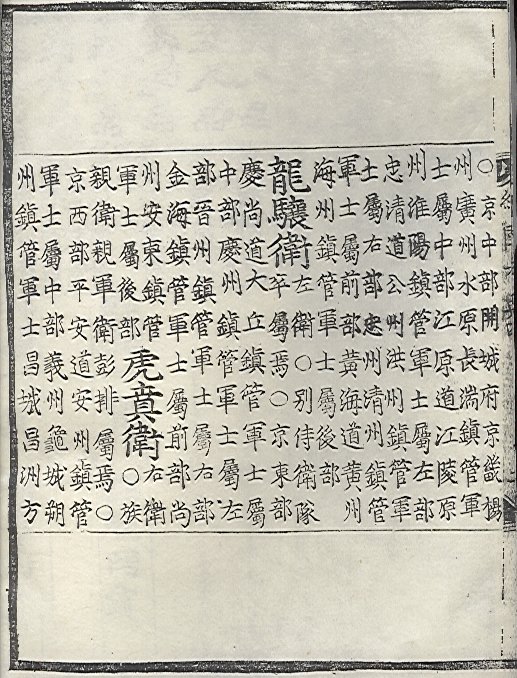 ○京中部開城府京畿楊
州廣州水原長湍鎮管軍
士屬中部江原道江陵原
州淮陽鎮管軍士屬左部
忠清道公州洪州鎮管軍
士屬右部忠州清州鎮管
軍士屬前部黃海道黃州
海州鎮管軍士屬後部
龍驤衛
左衛○別侍衛隊
卒屬焉○京東部
慶尚道大丘鎮管軍士屬
中部慶州鎮管軍士屬左
部晉州鎮管軍士屬右部
金海鎮管軍士屬前部尚
州安東鎮管
軍士屬後部
虎賁衛
右衛
○族
親衛親軍衛彭排屬焉○
京西部平安道安州鎮管
軍士屬中部義州龜城朔
州鎮管軍士昌城昌洲方